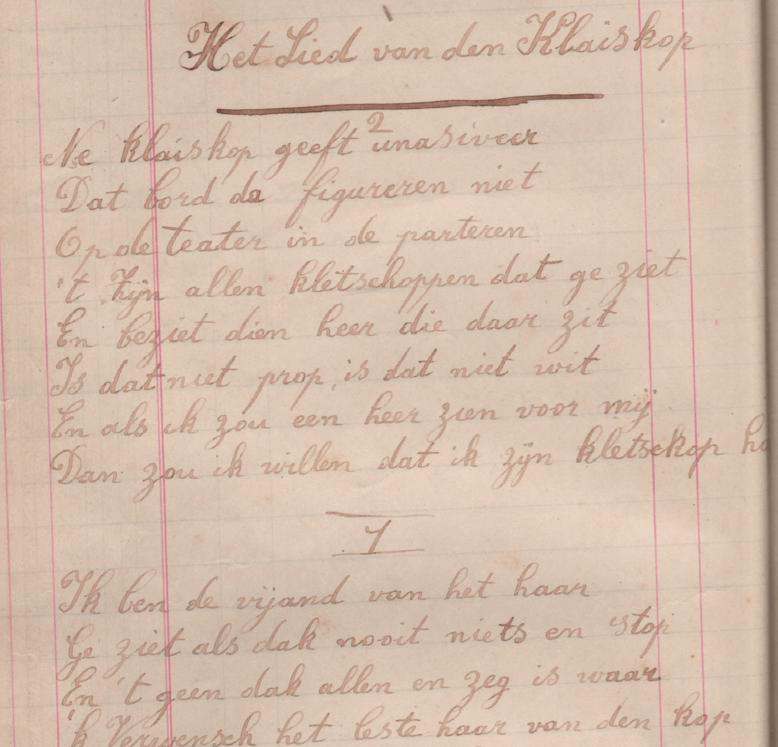 Het Lied van den Klaiskop
2
Ne klaiskop geeft unasiveer
Dat bord da figureren niet
Op de teater in de parteren
't Zijn allen kletschoppen dat ge ziet
En beziet dien heer die daar zit
Is dat niet prop, is dat niet wit
En als ik zou een heer zien voor mij
Dan zou ik willen dat ik zijn kletsekop
1
Ik ben de vijand van het haar
Ge ziet als dak nooit niets en stop
En 't geen dak allen en zeg is waar
'k Verwensch het leste haar van den kop